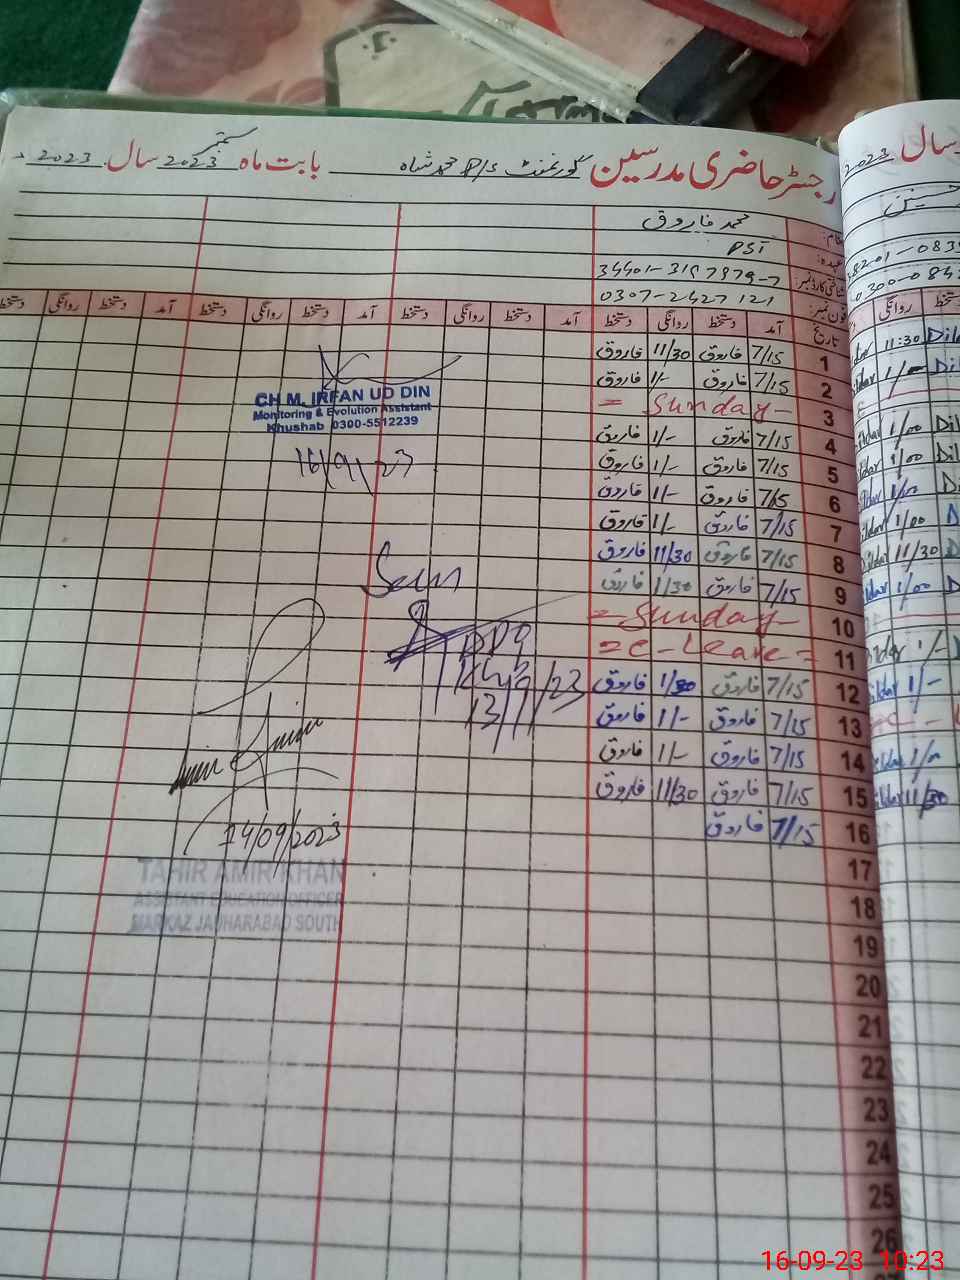 رجسٹر حاضری مدرسین گورنمنٹ P/S محمد شاہ بابت ماہ ستمبر 2023 سال 2023
نام: محمد فاروق
عہدہ: PST
شناختی کارڈ نمبر: 34401-3197879-7
فون نمبر: 0307-2427121
تاریخ آمد دستخط روانگی دستخط آمد دستخط روانگی دستخط آمد دستخط روانگی دستخط آمد دستخط روانگی دستخط
1 7/15 فاروق 11/30 فاروق
2 7/15 فاروق 1/- فاروق
3 = Sunday -
4 7/15 فاروق 1/- فاروق
5 7/15 فاروق 1/- فاروق
6 7/15 فاروق 1/- فاروق
7 7/15 فاروق 1/- فاروق
8 7/15 فاروق 11/30 فاروق
9 7/15 فاروق 1/30 فاروق
10 = Sunday -
11 = C - Leave =
12 7/15 فاروق 1/30 فاروق
13 7/15 فاروق 1/- فاروق
14 7/15 فاروق 1/- فاروق
15 7/15 فاروق 11/30 فاروق
16 7/15 فاروق
17
18
19
20
21
22
23
24
25
26
CH M. IRFAN UD DIN
Monitoring & Evolution Assistant
Khushab 0300-5512239
16/9/23
Seen
13/9/23
14/09/2023
TAHIR AMIR KHAN
ASSISTANT EDUCATION OFFICER
MARKAZ JAUHARABAD SOUTH
سال 2023
روانگی
11:30
1/00
1/00
1/00
1/00
1/00
11/30
1/00
1/-
1/-
11/30
16-09-23 10:23